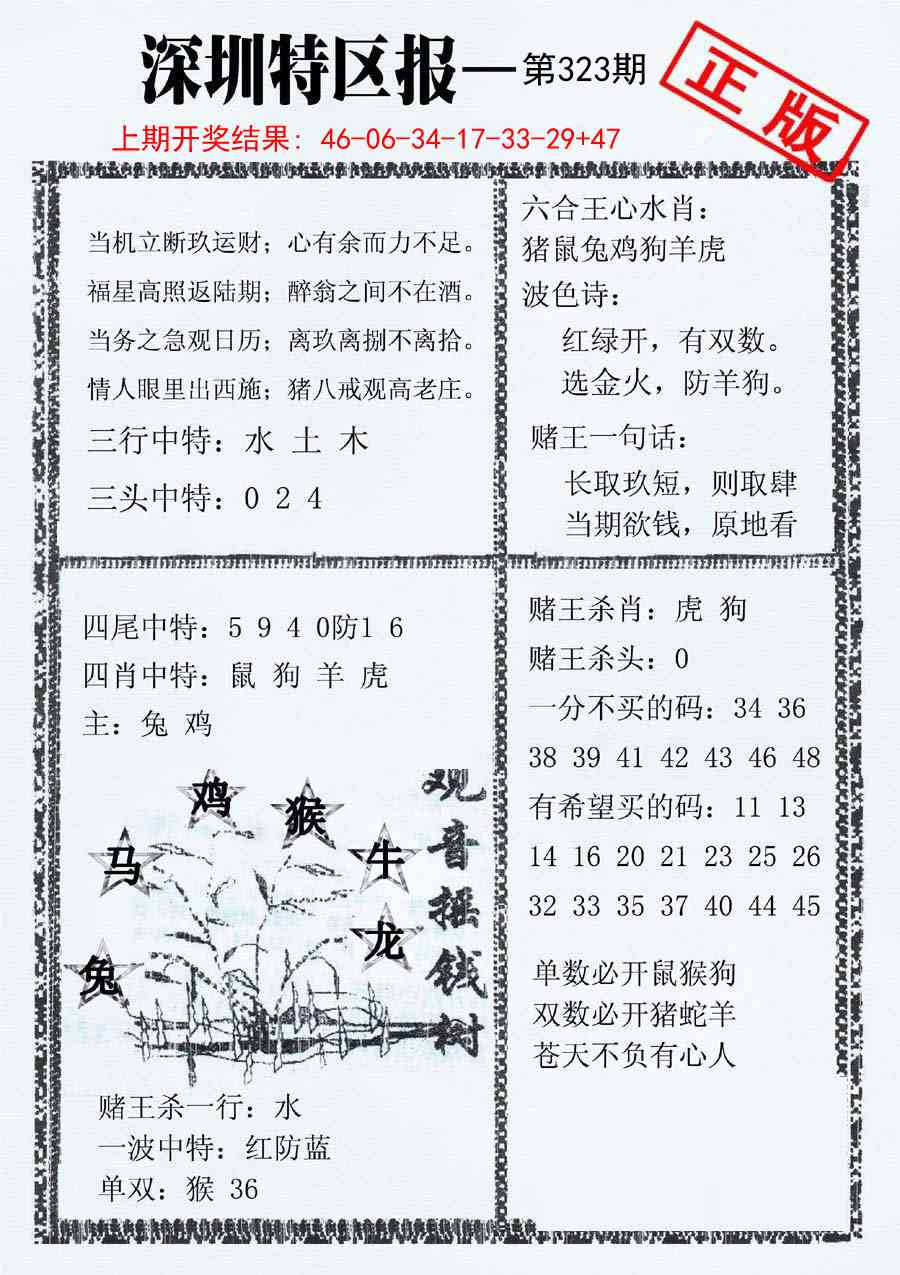 深圳特区报—第323期
正版
上期开奖结果: 46-06-34-17-33-29+47
当机立断玖运财；心有余而力不足。
福星高照返陆期；醉翁之间不在酒。
当务之急观日历；离玖离捌不离拾。
情人眼里出西施；猪八戒观高老庄。
三行中特：水 土 木
三头中特：0 2 4
六合王心水肖：
猪鼠兔鸡狗羊虎
波色诗：
红绿开，有双数。
选金火，防羊狗。
赌王一句话：
长取玖短，则取肆
当期欲钱，原地看
四尾中特：5 9 4 0防1 6
四肖中特：鼠 狗 羊 虎
主：兔 鸡
鸡
猴
马
牛
龙
兔
观音摇钱树
赌王杀一行：水
一波中特：红防蓝
单双：猴 36
赌王杀肖：虎 狗
赌王杀头：0
一分不买的码：34 36
38 39 41 42 43 46 48
有希望买的码：11 13
14 16 20 21 23 25 26
32 33 35 37 40 44 45
单数必开鼠猴狗
双数必开猪蛇羊
苍天不负有心人